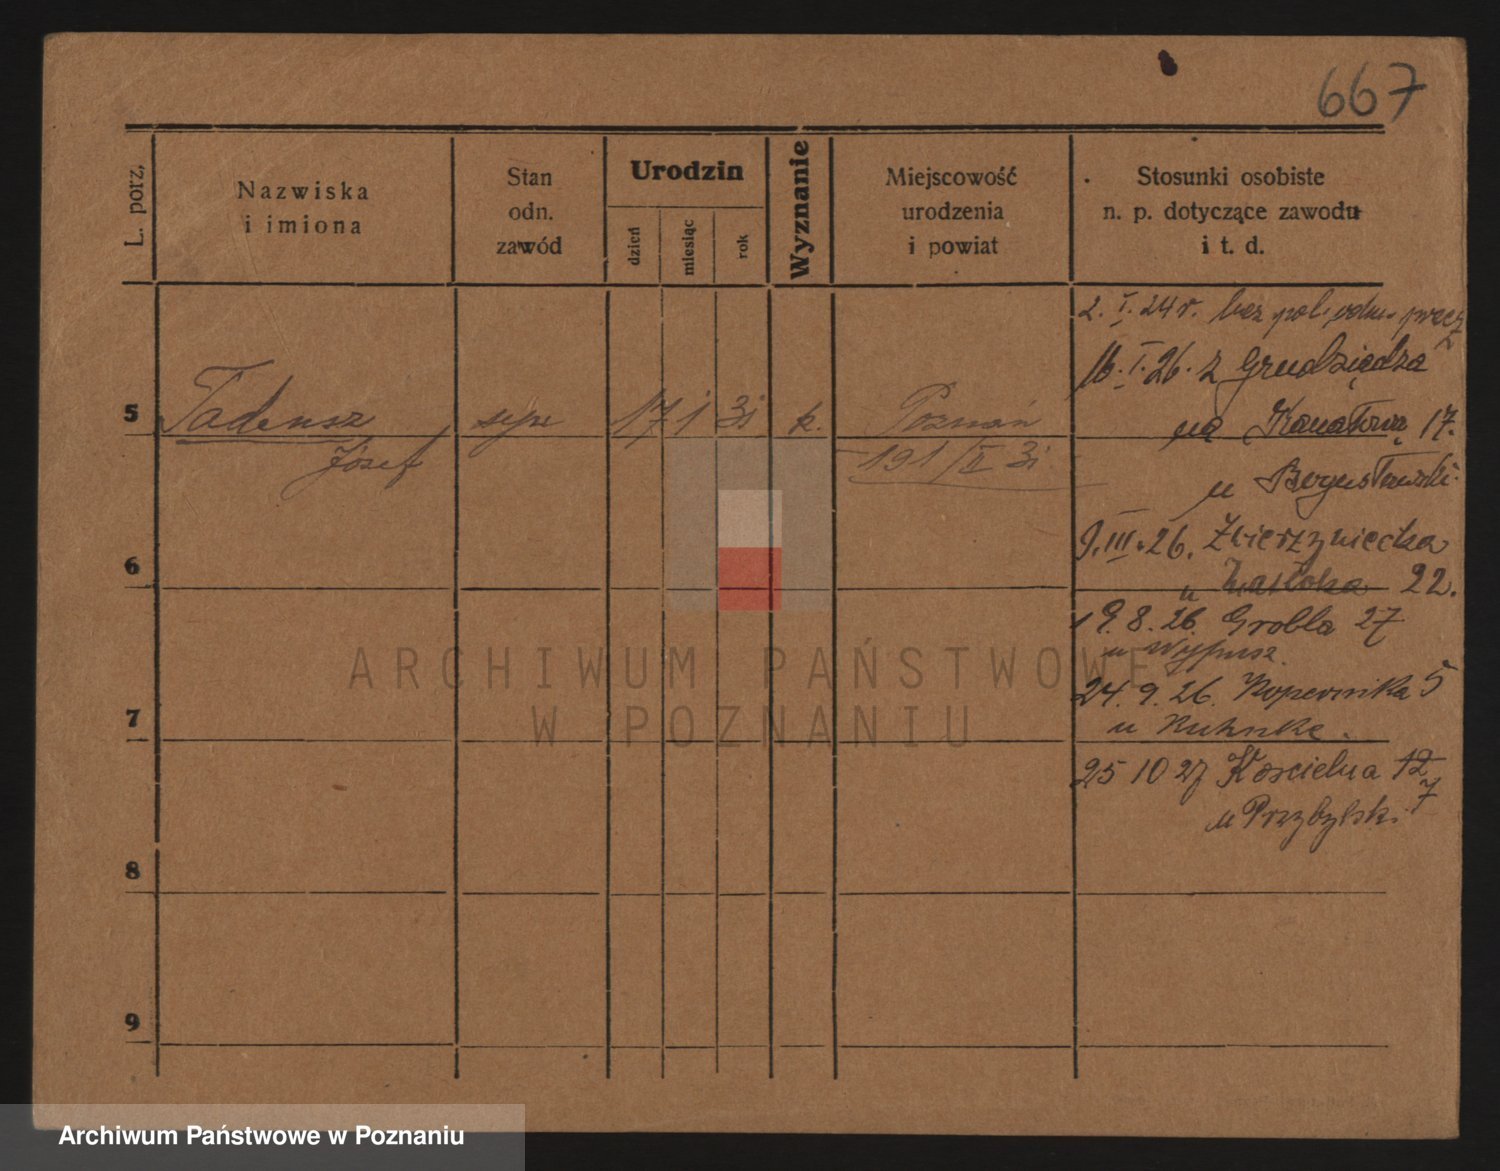 667
L. porz.
Nazwiska
i imiona
Stan
odn.
zawód
Urodzin
dzień
miesiąc
rok
Wyznanie
Miejscowość
urodzenia
i powiat
Stosunki osobiste
n. p. dotyczące zawodu
i t. d.
2. I. 24 r. bez pol. odm. precz
16. I. 26. z Grudziądza
na Kanałową 17.
u Bogusławski.
5 Tadeusz syn 17 1 31 k. Poznań
Józef 191/II 31
9. III. 26. Zwierzyniecka
6 u 22.
19. 8. 26. Grobla 27
u Wypusz.
24. 9. 26. Kopernika 5
7 u Kuhnke.
25 10 27 Kościelna 12
7
u Przybylski.
8
9
ARCHIWUM PAŃSTWOWE
W POZNANIU
Archiwum Państwowe w Poznaniu